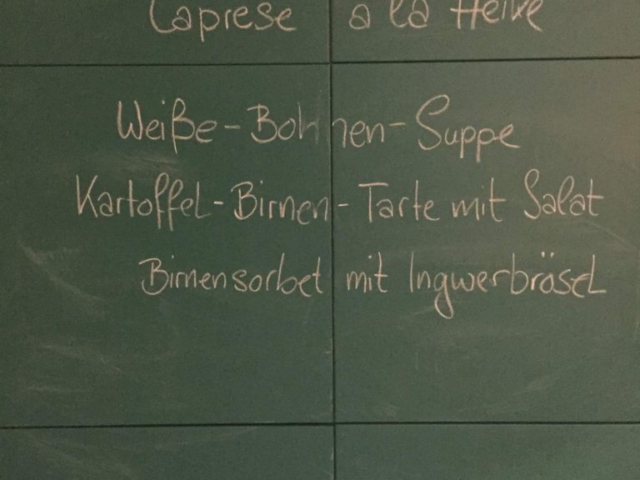 Caprese a la Heike
Weiße-Bohnen-Suppe
Kartoffel-Birnen-Tarte mit Salat
Birnensorbet mit Ingwerbrösel